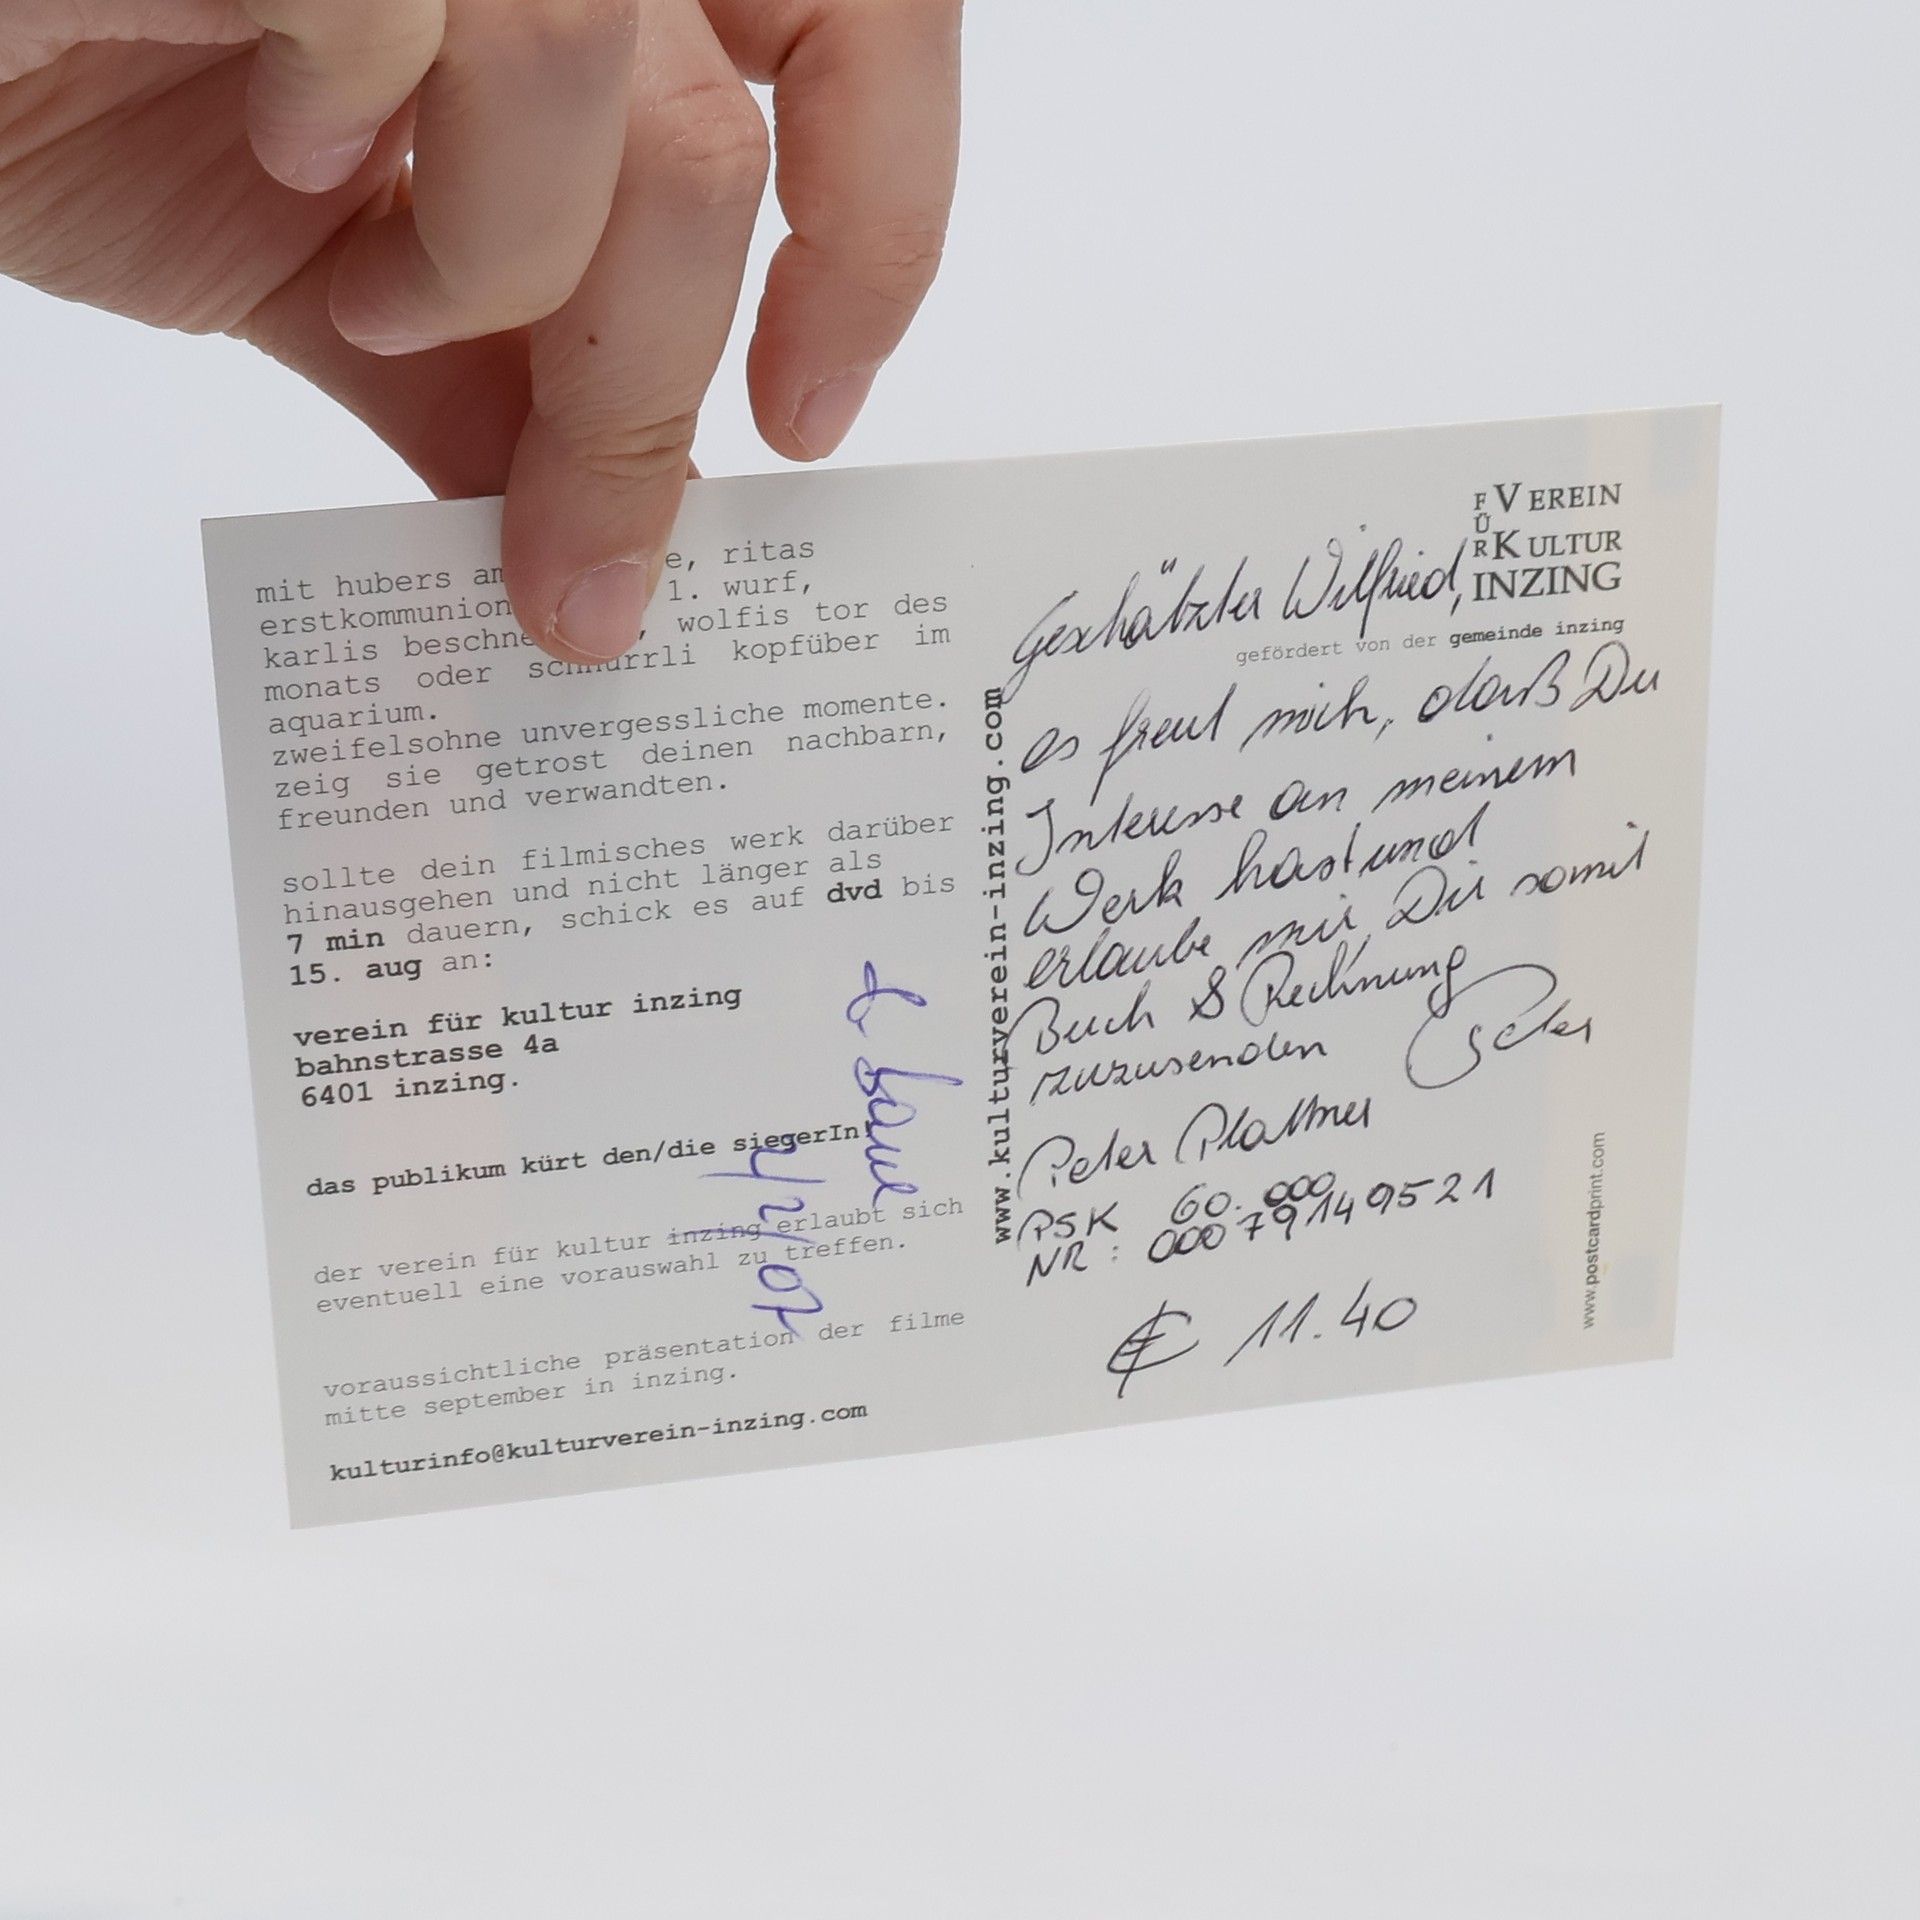 mit hubers am e, ritas
erstkommunion 1. wurf,
karlis beschne , wolfis tor des
monats oder schnurrli kopfüber im
aquarium.
zweifelsohne unvergessliche momente.
zeig sie getrost deinen nachbarn,
freunden und verwandten.
sollte dein filmisches werk darüber
hinausgehen und nicht länger als
7 min dauern, schick es auf dvd bis
15. aug an:
verein für kultur inzing
bahnstrasse 4a
6401 inzing.
das publikum kürt den/die siegerIn!
der verein für kultur inzing erlaubt sich
eventuell eine vorauswahl zu treffen.
voraussichtliche präsentation der filme
mitte september in inzing.
kulturinfo@kulturverein-inzing.com
2/2/07
www.kulturverein-inzing.com
FÜR VEREIN
KULTUR
INZING
gefördert von der gemeinde inzing
Geschätzter Wilfried,
es freut mich, daß Du
Interesse an meinem
Werk hast und
erlaube mir Dir somit
Buch & Rechnung
zuzusenden Peter
Peter Plattner
PSK 60.000
NR: 00079149521
€ 11.40
www.postcardprint.com